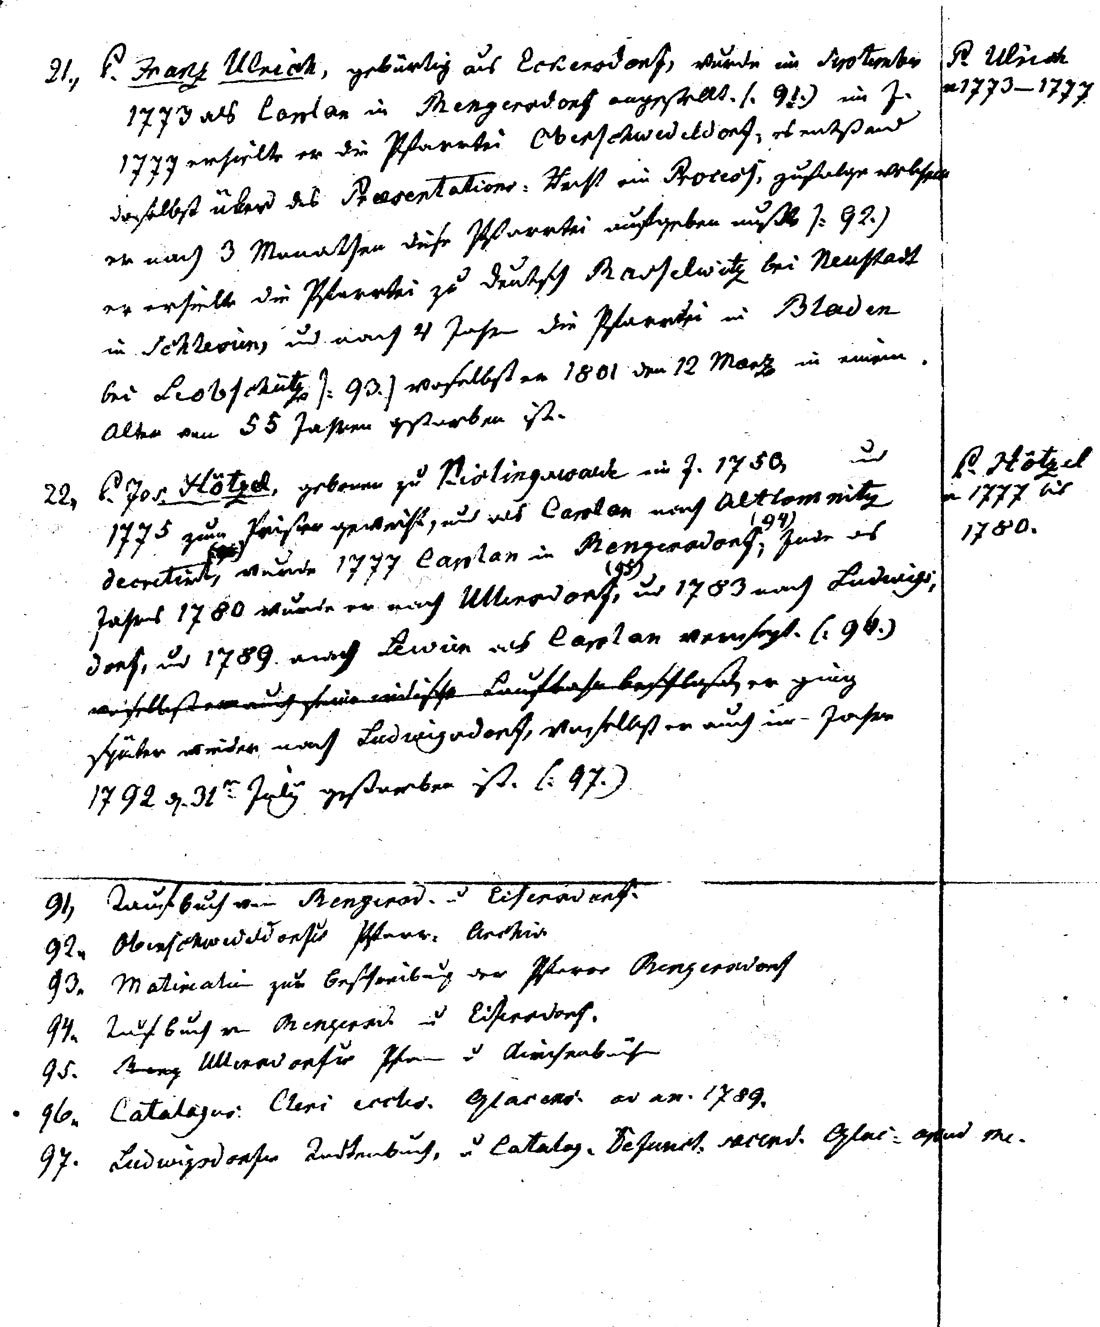 21., P. Franz Ulrich, gebürtig aus Eckersdorf, wurde im September
P. Ulrich
v 1773–1777
1773 als Caplan in Rengersdorf angestellt. (: 91.) im J.
1777 erhielte er die Pfarrtei Oberschwedeldorf, es entstand
daselbst über das Praesentations-Recht ein Process, zufolge welchem
er nach 3 Monathen diese Pfarrtei aufgeben mußte (: 92.)
er erhielte die Pfarrtei zu Deutsch Rasselwitz bei Neustadt
in Schlesien, und nach 4 Jahren die Pfarrtei in Bladen
bei Leobschütz (: 93.) woselbst er 1801 den 12 Maerz in einem
Alter von 55 Jahren gestorben ist.
22, P. Jos. Hötzel, geboren zu Kislingswalde im J. 1750, und
P. Hötzel
v 1777 bis
1780.
1775 zum Priester geweiht, und als Caplan nach Altlomnitz
decretirt, wurde 1777 Caplan in Rengersdorf, (94) Ende des
Jahres 1780 wurde er nach Ullersdorf, (95) und 1783 nach Ludwigs,
dorf, und 1789 nach Lewin als Caplan versetzt. (: 96.)
woselbst er auch seine irdische Laufbahn beschloß, er ging
später wieder nach Ludwigsdorf, woselbst er auch im Jahre
1792 d. 31ten July gestorben ist. (: 97.)
91, Taufbuch von Rengersd. u Eisersdorf.
92. Oberschwedeldorfer Pfarr. Archiv
93. Materialien zur Beschreibung der Pfarre Rengersdorf
94. Taufbuch v Rengersd. u Eisersdorf.
95. Ullersdorfer Pfarr u Kirchenbücher
96. Catalagus Cleri eccles. Glacens. ad an. 1789.
97. Ludwigsdorfer Todtenbuch, u Catalog. Defunct. sacerd. Glac. apud me.